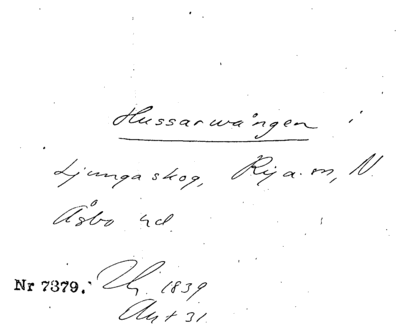 Hussarwången i
Ljungaskog, Rya sn, N.
Åsbo hd.
Nr 7379. 1839
Akt 31